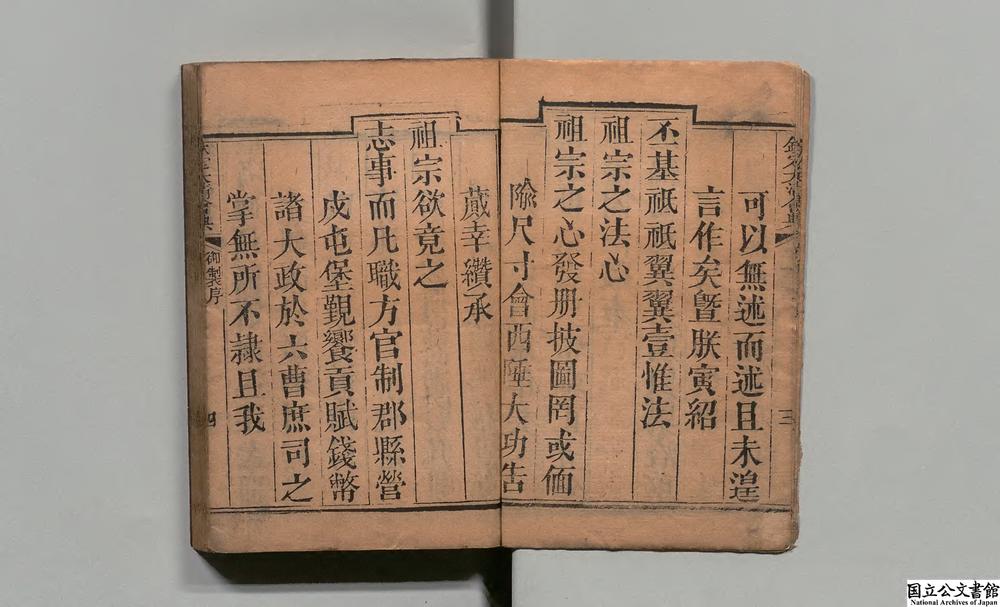 可以無述而述且未遑
言作矣曁朕寅紹
丕基祗祗翼翼壹惟法
祖宗之法心
祖宗之心發册披圖罔或偭
隃尺寸會西陲大功告
蕆幸纘承
祖宗欲竟之
志事而凡職方官制郡縣營
戍屯堡覲饗貢賦錢幣
諸大政於六曹庶司之
掌無所不隷且我
御製序
四
三
国立公文書館
National Archives of Japan